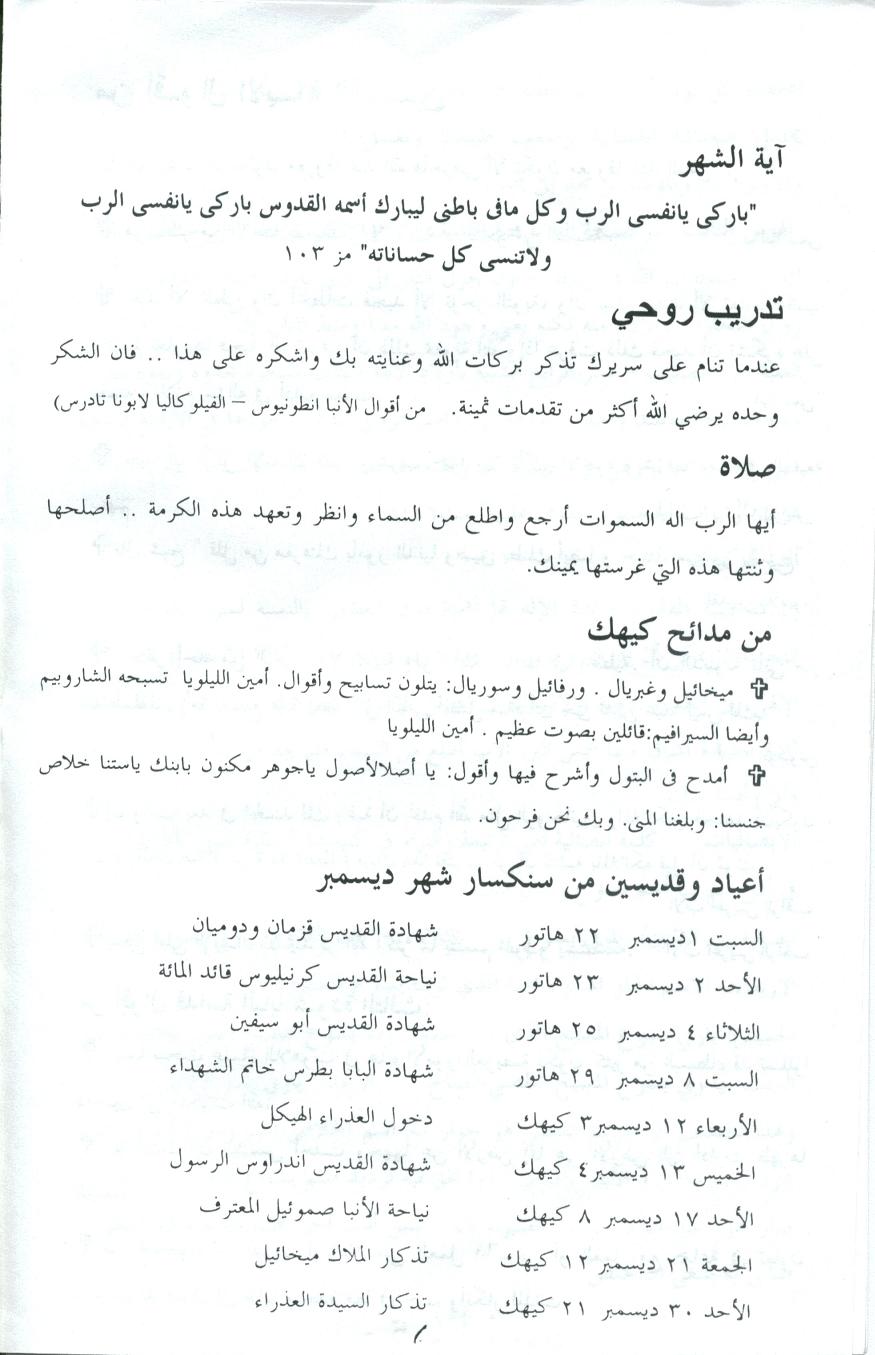 آية الشهر
"باركى يانفسى الرب وكل مافى باطنى ليبارك أسمه القدوس باركى يانفسى الرب
ولاتنسى كل حساناته" مز ١٠٣
تدريب روحي
عندما تنام على سريرك تذكر بركات الله وعنايته بك واشكره على هذا .. فان الشكر
وحده يرضي الله أكثر من تقدمات ثمينة. من أقوال الأنبا انطونيوس – الفيلوكاليا لابونا تادرس)
صلاة
أيها الرب اله السموات أرجع واطلع من السماء وانظر وتعهد هذه الكرمة .. أصلحها
وثنتها هذه التي غرستها يمينك.
من مدائح كيهك
✞ ميخائيل وغبريال . ورفائيل وسوريال: يتلون تسابيح وأقوال. أمين الليلويا تسبحه الشاروبيم
وأيضا السيرافيم:قائلين بصوت عظيم . أمين الليلويا
✞ أمدح فى البتول وأشرح فيها وأقول: يا أصلالأصول ياجوهر مكنون بابنك ياستنا خلاص
جنسنا: وبلغنا المنى. وبك نحن فرحون.
أعياد وقديسين من سنكسار شهر ديسمبر
السبت ١ديسمبر ٢٢ هاتور شهادة القديس قزمان ودوميان
الأحد ٢ ديسمبر ٢٣ هاتور نياحة القديس كرنيليوس قائد المائة
الثلاثاء ٤ ديسمبر ٢٥ هاتور شهادة القديس أبو سيفين
السبت ٨ ديسمبر ٢٩ هاتور شهادة البابا بطرس خاتم الشهداء
الأربعاء ١٢ ديسمبر٣ كيهك دخول العذراء الهيكل
الخميس ١٣ ديسمبر٤ كيهك شهادة القديس اندراوس الرسول
الأحد ١٧ ديسمبر ٨ كيهك نياحة الأنبا صموئيل المعترف
الجمعة ٢١ ديسمبر ١٢ كيهك تذكار الملاك ميخائيل
الأحد ٣٠ ديسمبر ٢١ كيهك تذكار السيدة العذراء
١